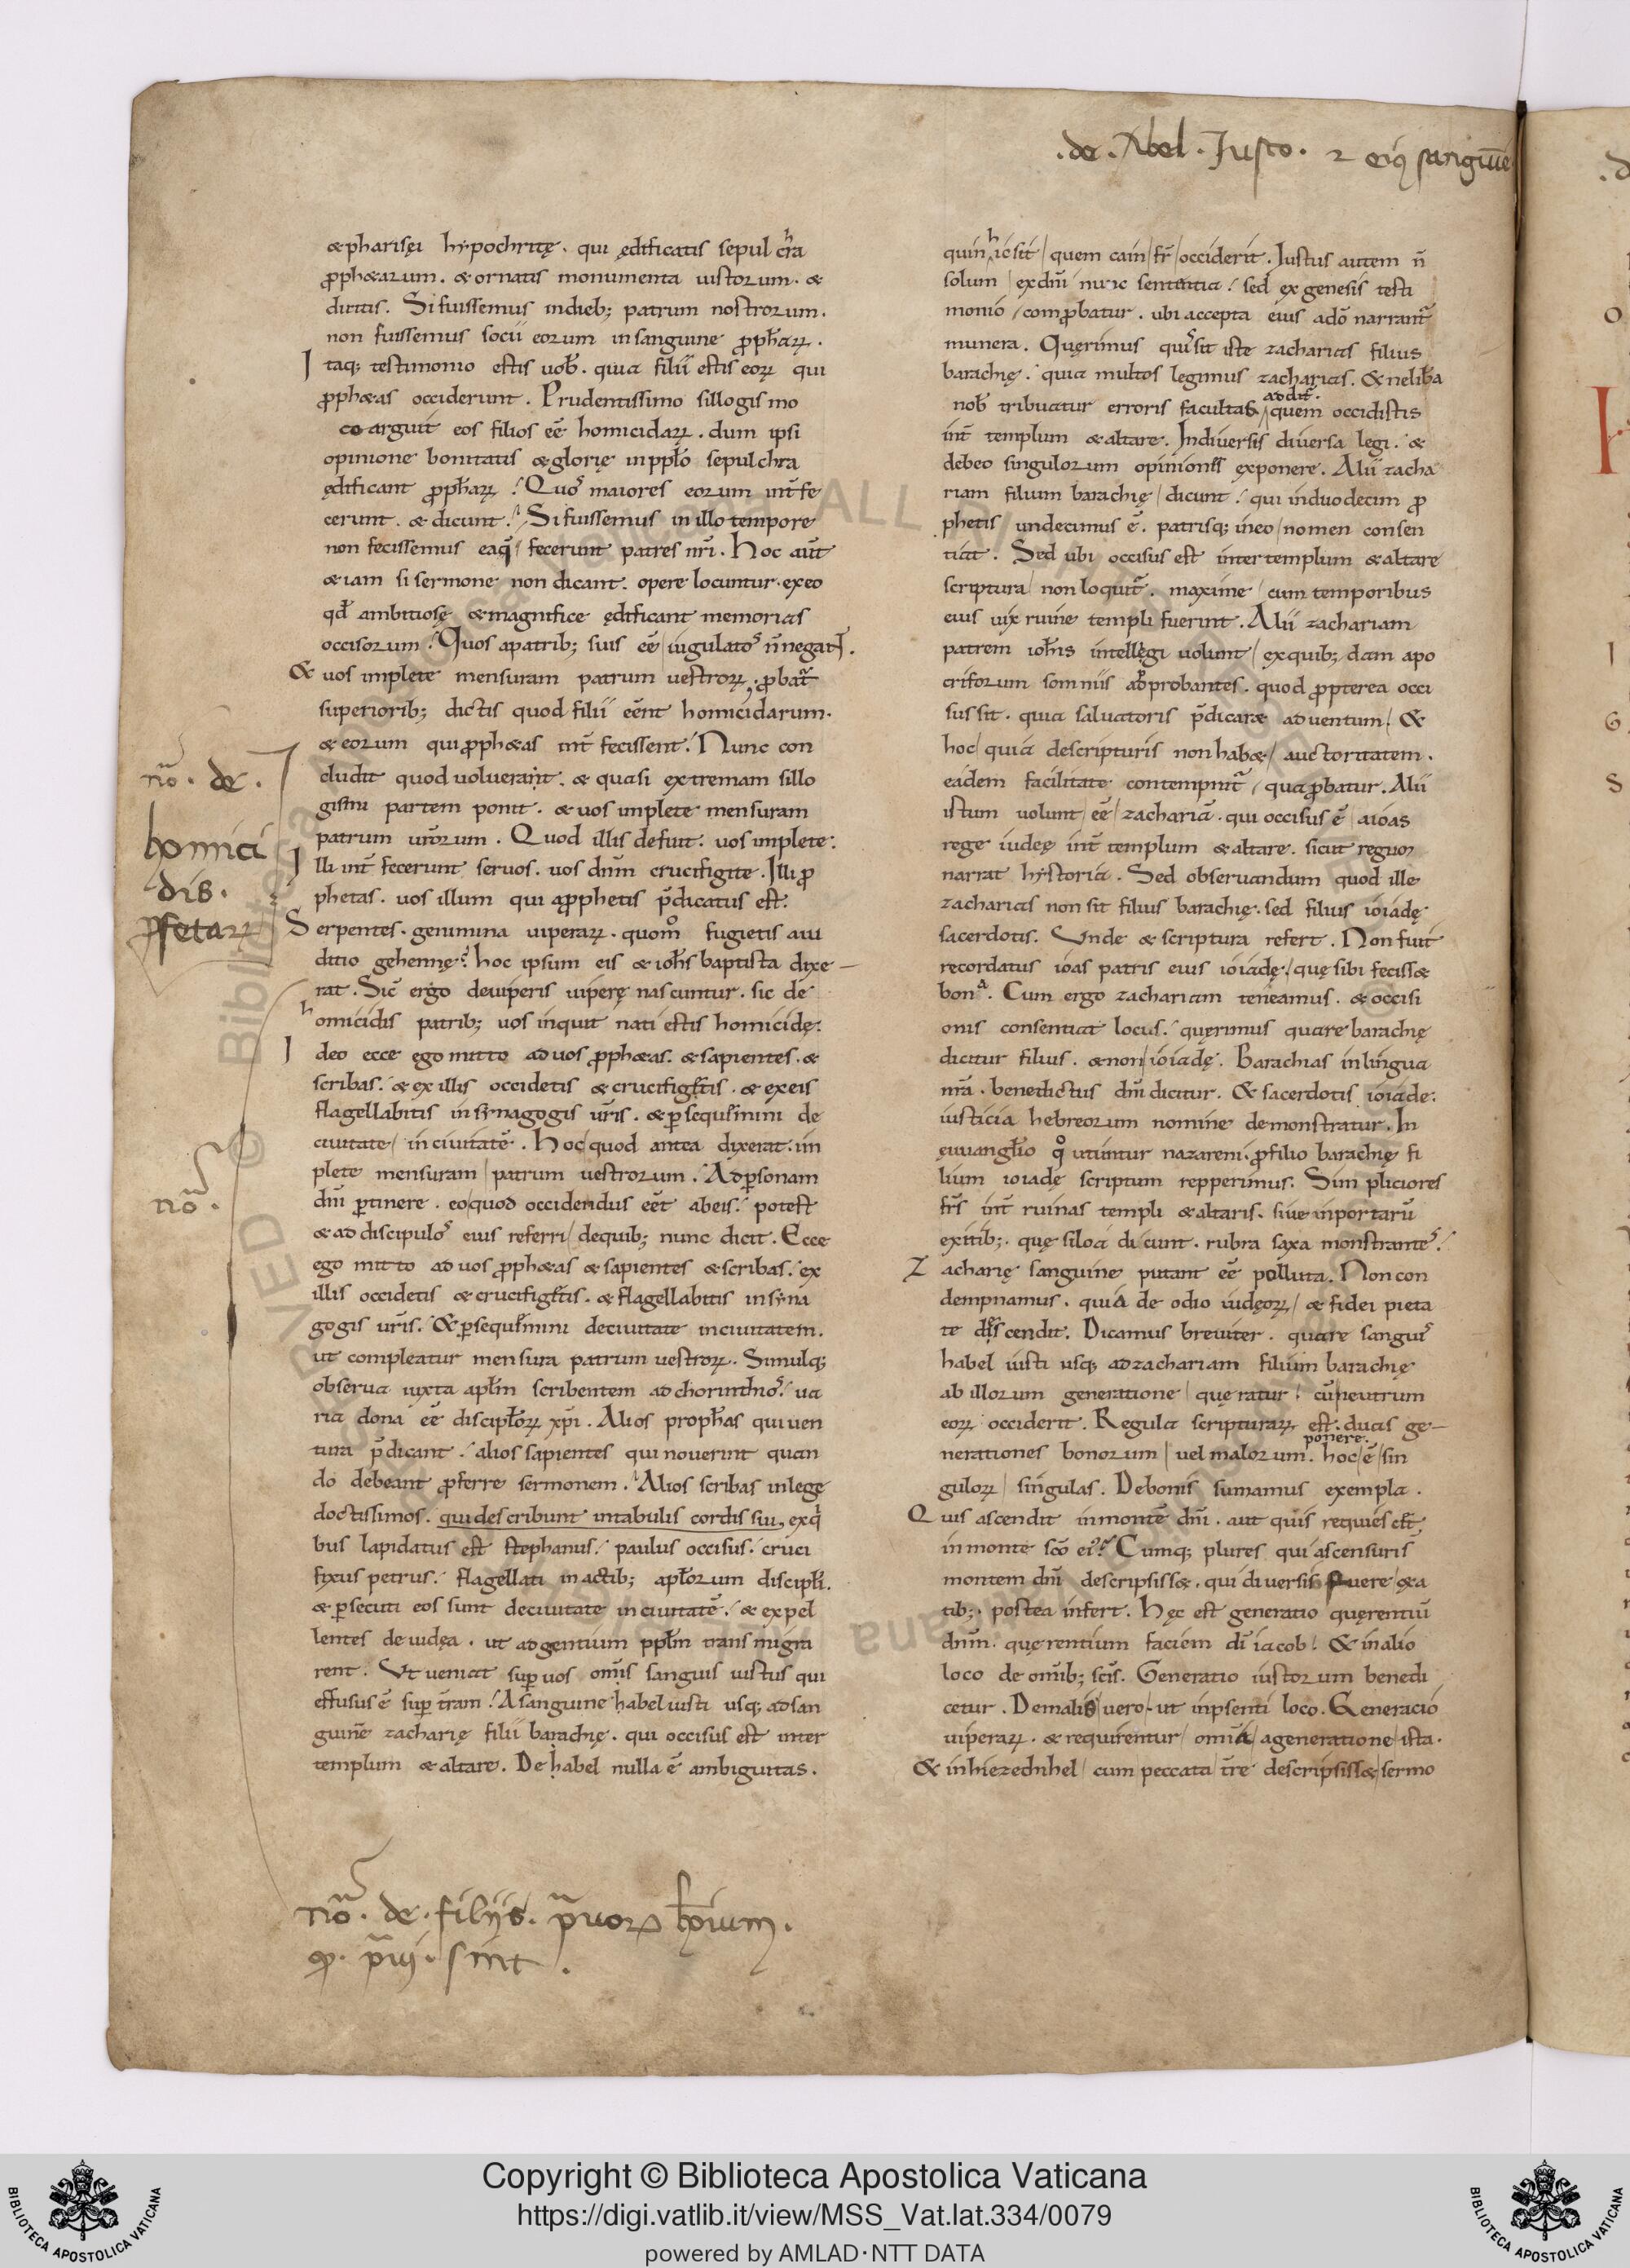 .de. Abel. Iusto. ⁊ eiꝰ sanguīe
&pharisęi hypochritę. qui ędificatis sepulchra
ꝓph&arum. & ornatis monumenta iustorum. &
dicitis. Si fuissemus indieb; patrum nostrorum.
non fuissemus socii eorum insanguine ꝓph̄arꝝ.
Itaq; testimonio estis uob̄. quia filii estis eorꝝ qui
ꝓph&as occiderunt. Prudentissimo sillogismo
coarguit eos filios eē homicidarꝝ. dum ipsi
opinione bonitatis & glorię inppl̄o sepulchra
ędificant ꝓph̄arꝝ. Quoſ maiores eorum int̄fe
cerunt. & dicunt. Si fuissemus in illo tempore
non fecissemus eaq̄ fecerunt patres nr̄i. Hoc aūt
&iam si sermone non dicant. opere locuntur. exeo
qd̄ ambitiosę & magnifice ędificant memorias
occisorum. Quos apatrib; suis eē iugulatoſ n̄ negant.
& uos implete mensuram patrum uestrorꝝ. ꝓbat̄
superiorib; dictis quod filii eēnt homicidarum.
& eorum qui ꝓph&as int̄fecissent. Nunc con
cludit quod uoluerant. & quasi extremam sillo
gismi partem ponit. & uos implete mensuram
patrum ur̄orum. Quod illis defuit. uos implete.
Illi int̄fecerunt seruos. uos dn̄m crucifigite. Illi ꝓ
phetas. uos illum qui aꝓphetis p̄dicatus est.
Serpentes. genimina uiperarꝝ. quom̊ fugietis aiu
ditio gehennę. hoc ipsum eis & ioh̄s baptista dixe
rat. Sic̄ ergo deuiperis uiperę nascuntur. sic de
homicidis patrib; uos inquit nati estis homicidę.
Ideo ecce ego mitto aduos ꝓph&as. & sapientes. &
scribas. & ex illis occidetis & crucifig&is. & exeis
flagellabitis insynagogis ur̄is. & ꝑsequimini de
ciuitate in ciuitatē. Hoc quod antea dixerat. im
plete mensuram patrum uestrorum. Adꝑsonam
dn̄i ꝑtinere. eo quod occidendus eēt abeis. potest
& ad discipuloſ eius referri dequib; nunc dicit. Ecce
ego mitto ad uos ꝓph&as & sapientes & scribas. ex
illis occidetis & crucifig&is. & flagellabitis insyna
gogis ur̄is. & ꝑsequimini deciuitate inciuitatem.
ut compleatur mensura patrum uestrorꝝ. Simulq;
obserua iuxta apl̄m scribentem ad chorinthioſ. ua
ria dona eē discipl̄orꝝ xp̄i. Alios proph&as qui uen
tura p̄dicant. alios sapientes qui nouerint quan
do debeant ꝓferre sermonem. Alios scribas inlege
doctissimos. qui describunt intabulis cordis sui, exq̄
bus lapidatus est stephanus. paulus occisus. cruci
fixus petrus. flagellati inactib; apl̄orum discipl̄i.
& ꝑsecuti eos sunt deciuitate in ciuitatē. & expel
lentes de iudęa. ut ad gentium ppl̄m transmigra
rent. Ut ueniat suꝑ uos omīs sanguis iustus qui
effusus ē suꝑ t̄ram. A sanguine habel iusti usq; ad san
guinē zacharię filii barachię. qui occisus est inter
templum & altare. De habel nulla ē ambiguitas.
nō. de.
homici
dis.
ꝓfetarꝝ
nō.
nō. de. filijs.
sint.
quin hic sit quem cain fr̄ occiderit. Iustus autem n̄
solum exdn̄i nunc sententia. sed ex genesis testi
monio comꝓbatur. ubi accepta eius adō narrant̄
munera. Quęrimus quiſ sit iste zacharias filius
barachię. quia multos legimus zacharias. & nelib̄a
nob̄ tribuatur erroris facultas addit̄. quem occidistis
int̄ templum & altare. Indiuersis diuersa legi. &
debeo singulorum opiniones exponere. Alii zacha
riam filium barachię dicunt. qui induodecim ꝓ
phetis undecimus ē. patrisq; ineo nomen consen
tiat. Sed ubi occisus est inter templum & altare
scriptura non loquit̄. maxime cum temporibus
eius uix ruine templi fuerint. Alii zachariam
patrem ioh̄is intellęgi uolunt exquib;dam apo
criforum somniis approbantes. quod ꝓpterea occi
sus sit. quia saluatoris p̄dicar& aduentum. &
hoc quia descripturis non hab& auctoritatem.
eadem facilitate contempnit̄ qua ꝓbatur. Alii
istum uolunt eē zachariā. qui occisus ē aioas
rege iudeę int̄ templum & altare. sicut regum
narrat hystoria. Sed obseruandum quod ille
zacharias non sit filius barachię. sed filius ioiadę
sacerdotis. Unde & scriptura refert. Non fuit
recordatus ioas patris eius ioiadę. quę sibi feciss&
bona. Cum ergo zachariam teneamus. & occisi
onis consentiat locus. quęrimus quare barachię
dicitur filius. & non ioiadę. Barachias inlingua
nr̄a. benedictus dn̄i dicitur. & sacerdotis ioiade.
iusticia hebreorum nomine demonstratur. In
ęuuangl̄io q̊ utuntur nazareni. ꝓfilio barachię fi
lium ioiadę scriptum repperimus. Simpliciores
fr̄s int̄ ruinas templi & altaris. siue inportarū
exitib;. quę siloa ducunt. rubra saxa monstranteſ.
Zacharię sanguine putant eē polluta. Non con
dempnamus. quia de odio iudęorꝝ & fidei pieta
te discendit. Dicamus breuiter. quare sanguiſ
habel iusti usq; ad zachariam filium barachię
ab illorum generatione quęratur. cū neutrum
eorꝝ occiderit. Regula scripturarꝝ est. duas ge
nerationes bonorum uel malorum ponere. hoc ē sin
gulorꝝ singulas. Debonis sumamus exempla.
Quis ascendit inmontē dn̄i. aut quis requiescet
in monte sc̄o eiꝰ. Cumq; plures qui ascensuris
montem dn̄i descripsiss&. qui diuersis fuere &a
tib;. postea infert. Hęc est generatio quęrentiū
dn̄m. quęrentium faciem dī iacob. & inalio
loco de omīb; sc̄is. Generatio iustorum benedi
cetur. Demalis uero. ut inp̄senti loco. Generacio
uiperarꝝ. & requirentur om̄ia ageneratione ista.
& inhiezechihel cum peccata t̄re descripsiss& sermo
Copyright © Biblioteca Apostolica Vaticana
https://digi.vatlib.it/view/MSS_Vat.lat.334/0079
powered by AMLAD·NTT DATA
BIBLIOTECA APOSTOLICA VATICANA
BIBLIOTECA APOSTOLICA VATICANA